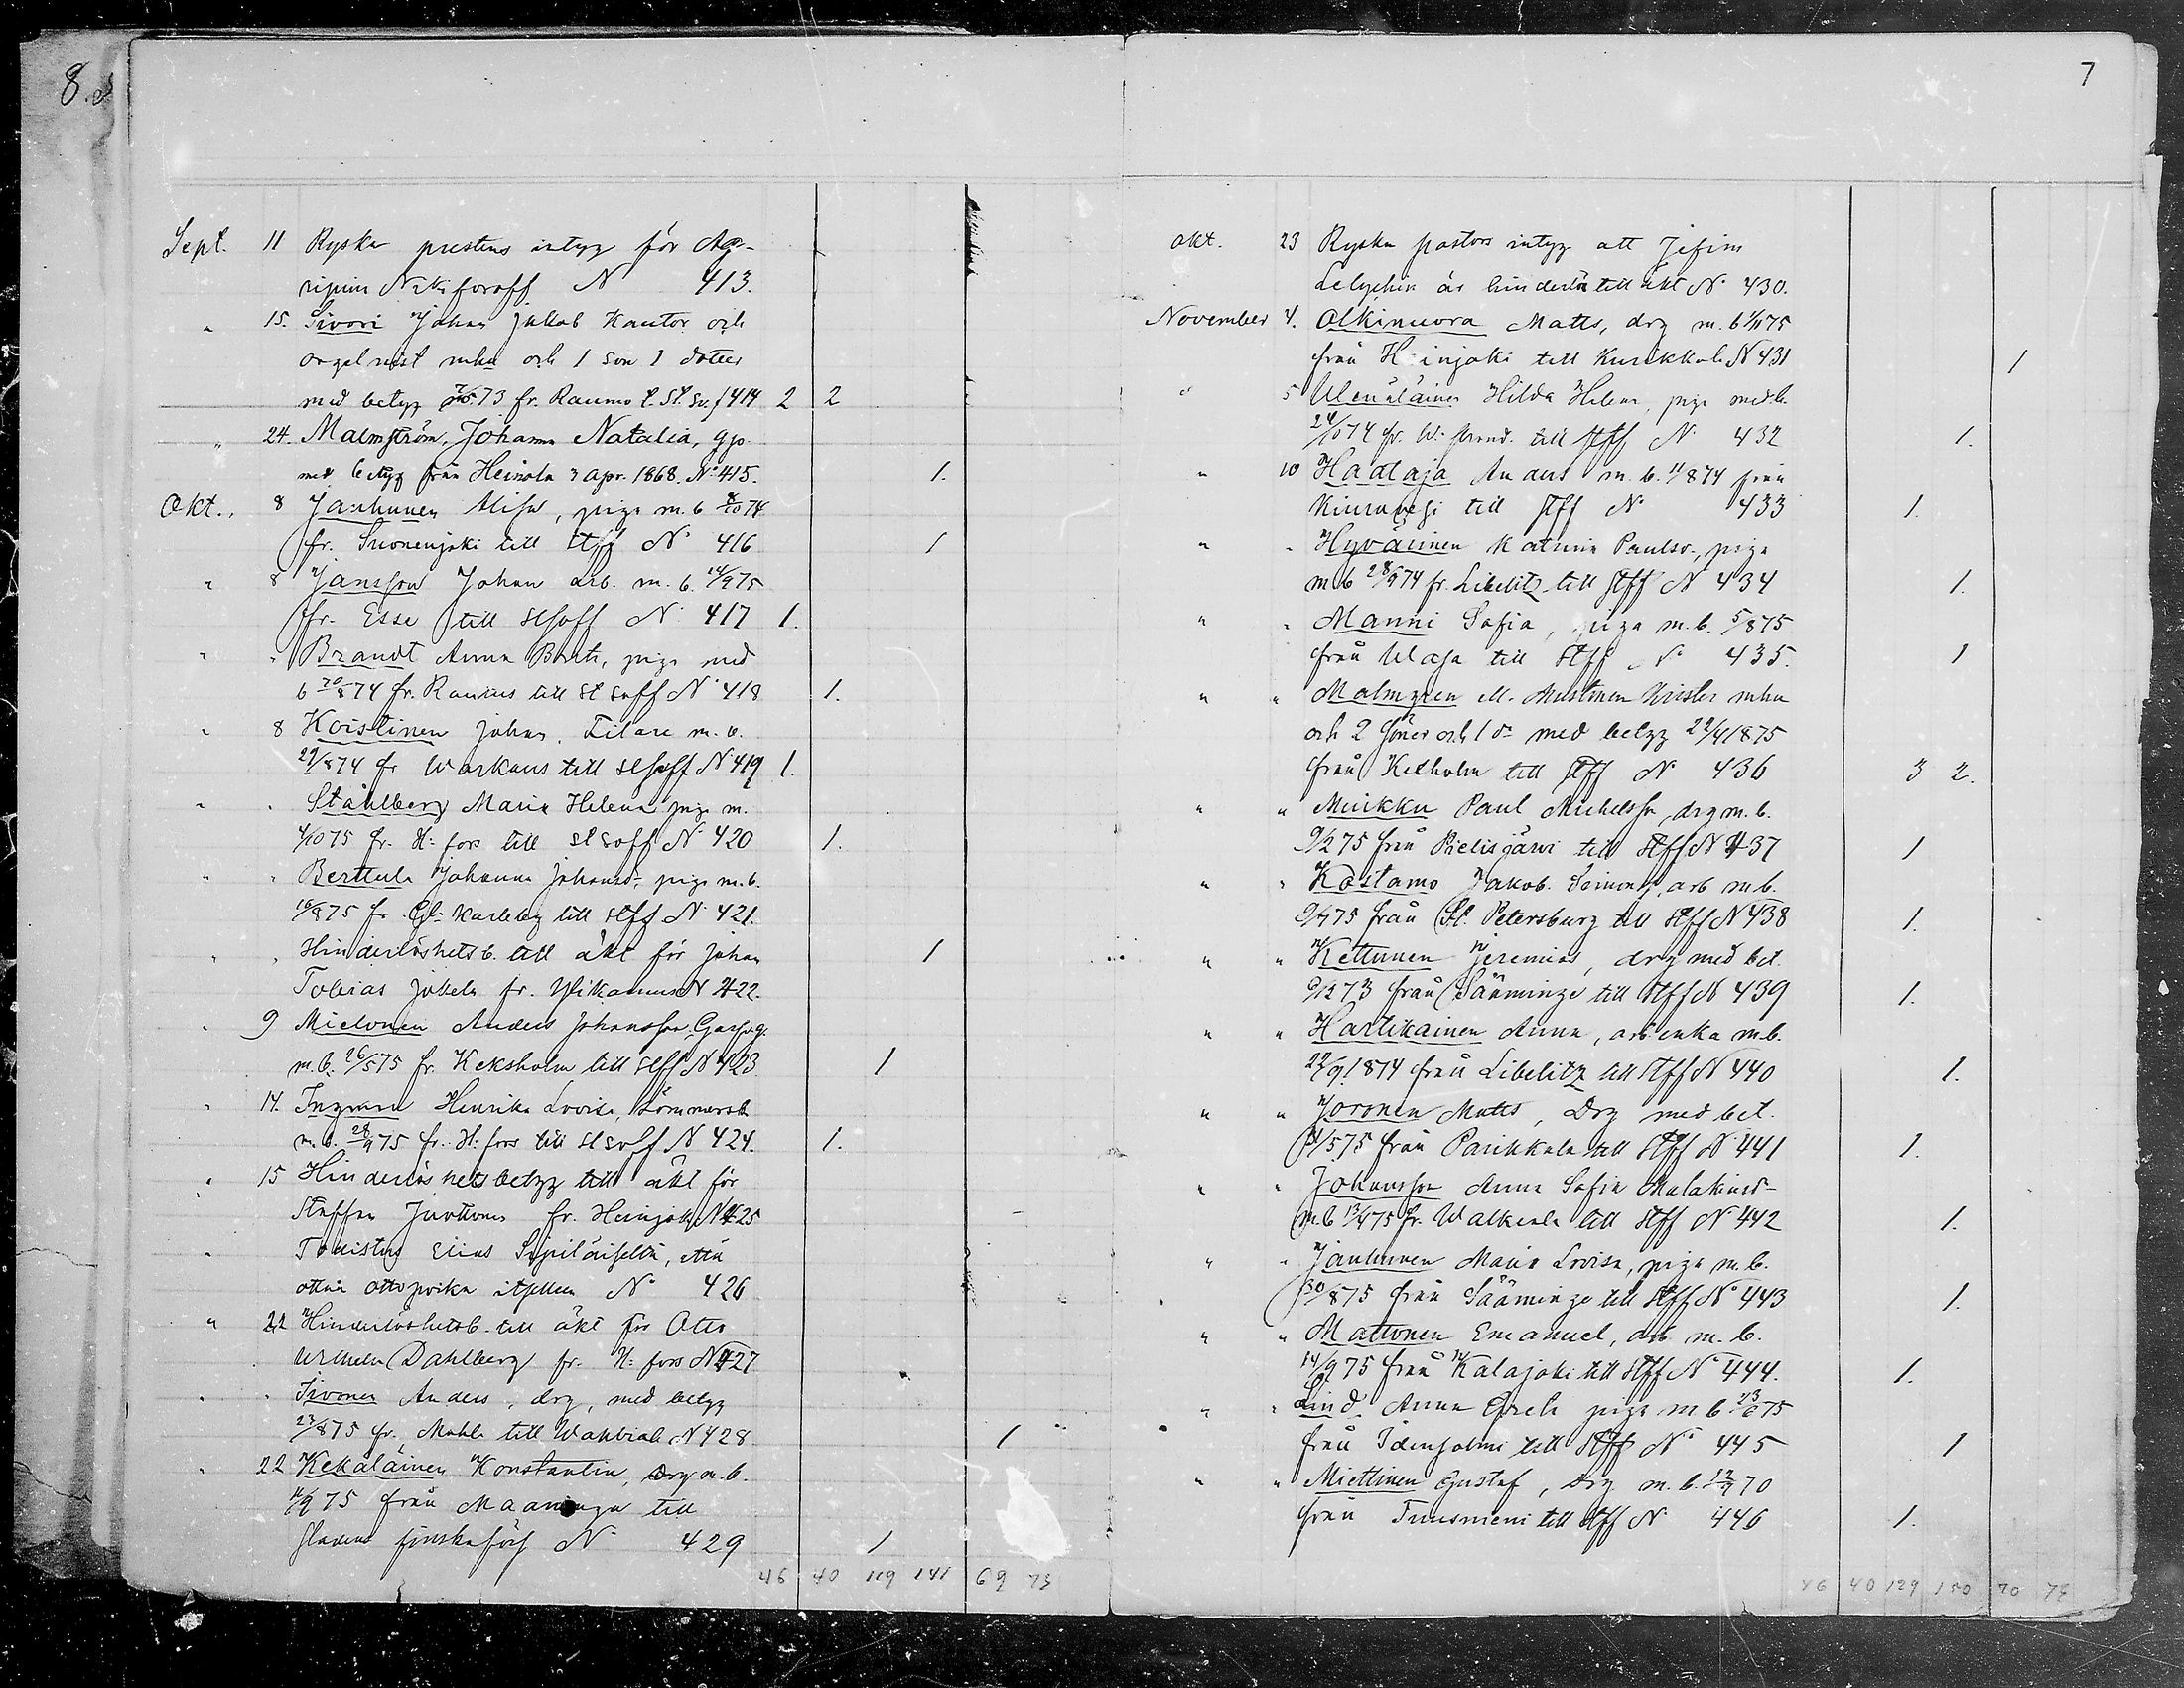 8.
Sept. 11 Ryska prestens intyg för Ag-
ripina Nikiforoff N 413.
" 15. Sivori Johan Jakob Kantor och
orgelnist mhu och 1 son 1 dotter
med betyg 73 fr. Raumo t. St. sv. f 414 2 2
" 24. Malmström, Johanna Natalia, gp
med betyg från Heinola 3 apr. 1868. No 415. 1.
Okt. 8 Janhunen piga m. b 8/10 74
fr. Suonenjoki till stff No 416 1
" 8 Jansson Johan arb. m. b. 14/9 75
fr. Esse till stsoff No 417 1.
" " Brandt Anna piga med
b 20/8 74 fr. till st soff No 418 1.
" 8 Koistinen Johan. Filare m. b.
29/8 74 fr Warkaus till stsoff No 419 1.
" " Ståhlberg Maria Helena piga m.
4/10 75 fr. H:fors till st soff No 420 1.
" " Berttula Johanna Johansd. piga m.b.
16/8 75 fr. Gl: Karleby till stff No 421.
" " Hinderlöshets b. till äkt för Johan 1
Tobias fr. Ylikannus N 422.
" 9 Mielonen Anders Johansson
m. b. 26/5 75 fr. Keksholm till stff No 423 1
" 14. Ingman Henrika Lovisa, sömmersk
m. b. 28/9 75 fr. H:fors till st soff No 424. 1.
" 15 Hinderlöshets betyg till äkt för
Staffan Juvonen fr. Heinjoki N 425
" Todistus Elias että
No 426
" 22 Hinderlöshetsb. till äkt för Otto
Wilhelm Dahlberg fr. H:fors No 427
" " Sivonen Anders, drg, med betyg
23/8 75 fr. Mohla till No 428 1
" 22 Kekäläinen Konstantin, Drg m. b.
75 från Maaninga till
stadens finska förs No 429 1
46 40 119 141 69 73
7
Okt. 23 Ryska pastors intyg att Jefim
är till äkt No 430.
November 4. Olkinuora Matts, drg m. b 1/11 75
från Heinjoki till N 431 1
" 5 Hilda Helena, piga med b.
24/10 74 fr. W: till stff No 432 1.
" 10 Haataja Anders m. b. 11/8 74 från
till stff No 433 1.
" " Hyvärinen Katrina Paulsd., piga
m b 28/9 74 fr. Libelitz till stff No 434 1.
" " Manni Sofia, piga m. b. 5/8 75
från Wasa till stff No 435. 1
" " Malmgren mhu
och 2 söner och 1 dr med betyg 22/4 1875
från Kexholm till stff No 436 3 2.
" " Muikku Paul Michelsson, drg m. b.
9/2 75 från Pielisjärvi till stff No 437 1
" " Kostamo Jakob. arb m b.
75 från St. Petersburg till stff No 438 1.
" " Kettunen Jeremias, drg med bet.
9/12 73 från Sääminge till stff No 439 1.
" " Hartikainen Anna, arb. enka m.b.
22/9 1874 från Libelitz till stff No 440 1.
" " Joronen Matts, Drg med bet.
75 från Parikkala till stff No 441 1.
" " Johansson Anna Sofia
m.b 13/4 75 fr. Walkeala till stff No 442 1.
" " Janhunen Maria Lovisa, piga m. b.
30/8 75 från Sääminge till stff No 443 1.
" " Mattonen Emanuel, arb. m. b.
14/9 75 från Kalajoki till stff No 444. 1.
" " Lind Anna Greta piga m b 75
från Idensalmi till stff No 445 1
" " Miettinen Gustaf, Drg m. b. 12/9 70
från Tuusniemi till stff No 446 1.
46 40 129 150 70 74